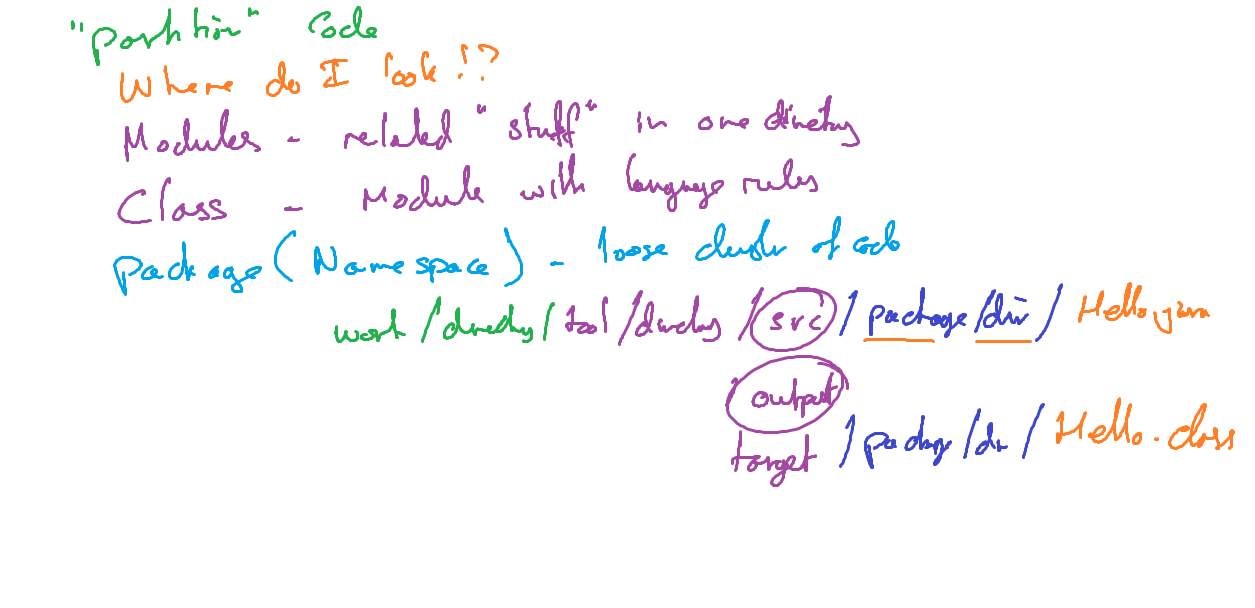 "Partition" Code
Where do I look!?
Modules - related "stuff" in one directory
Class - Module with language rules
package (Namespace) - loose cluster of code
work/directory/tool/directory/src/package/dir/Hello.java
output
target/package/dir/Hello.class